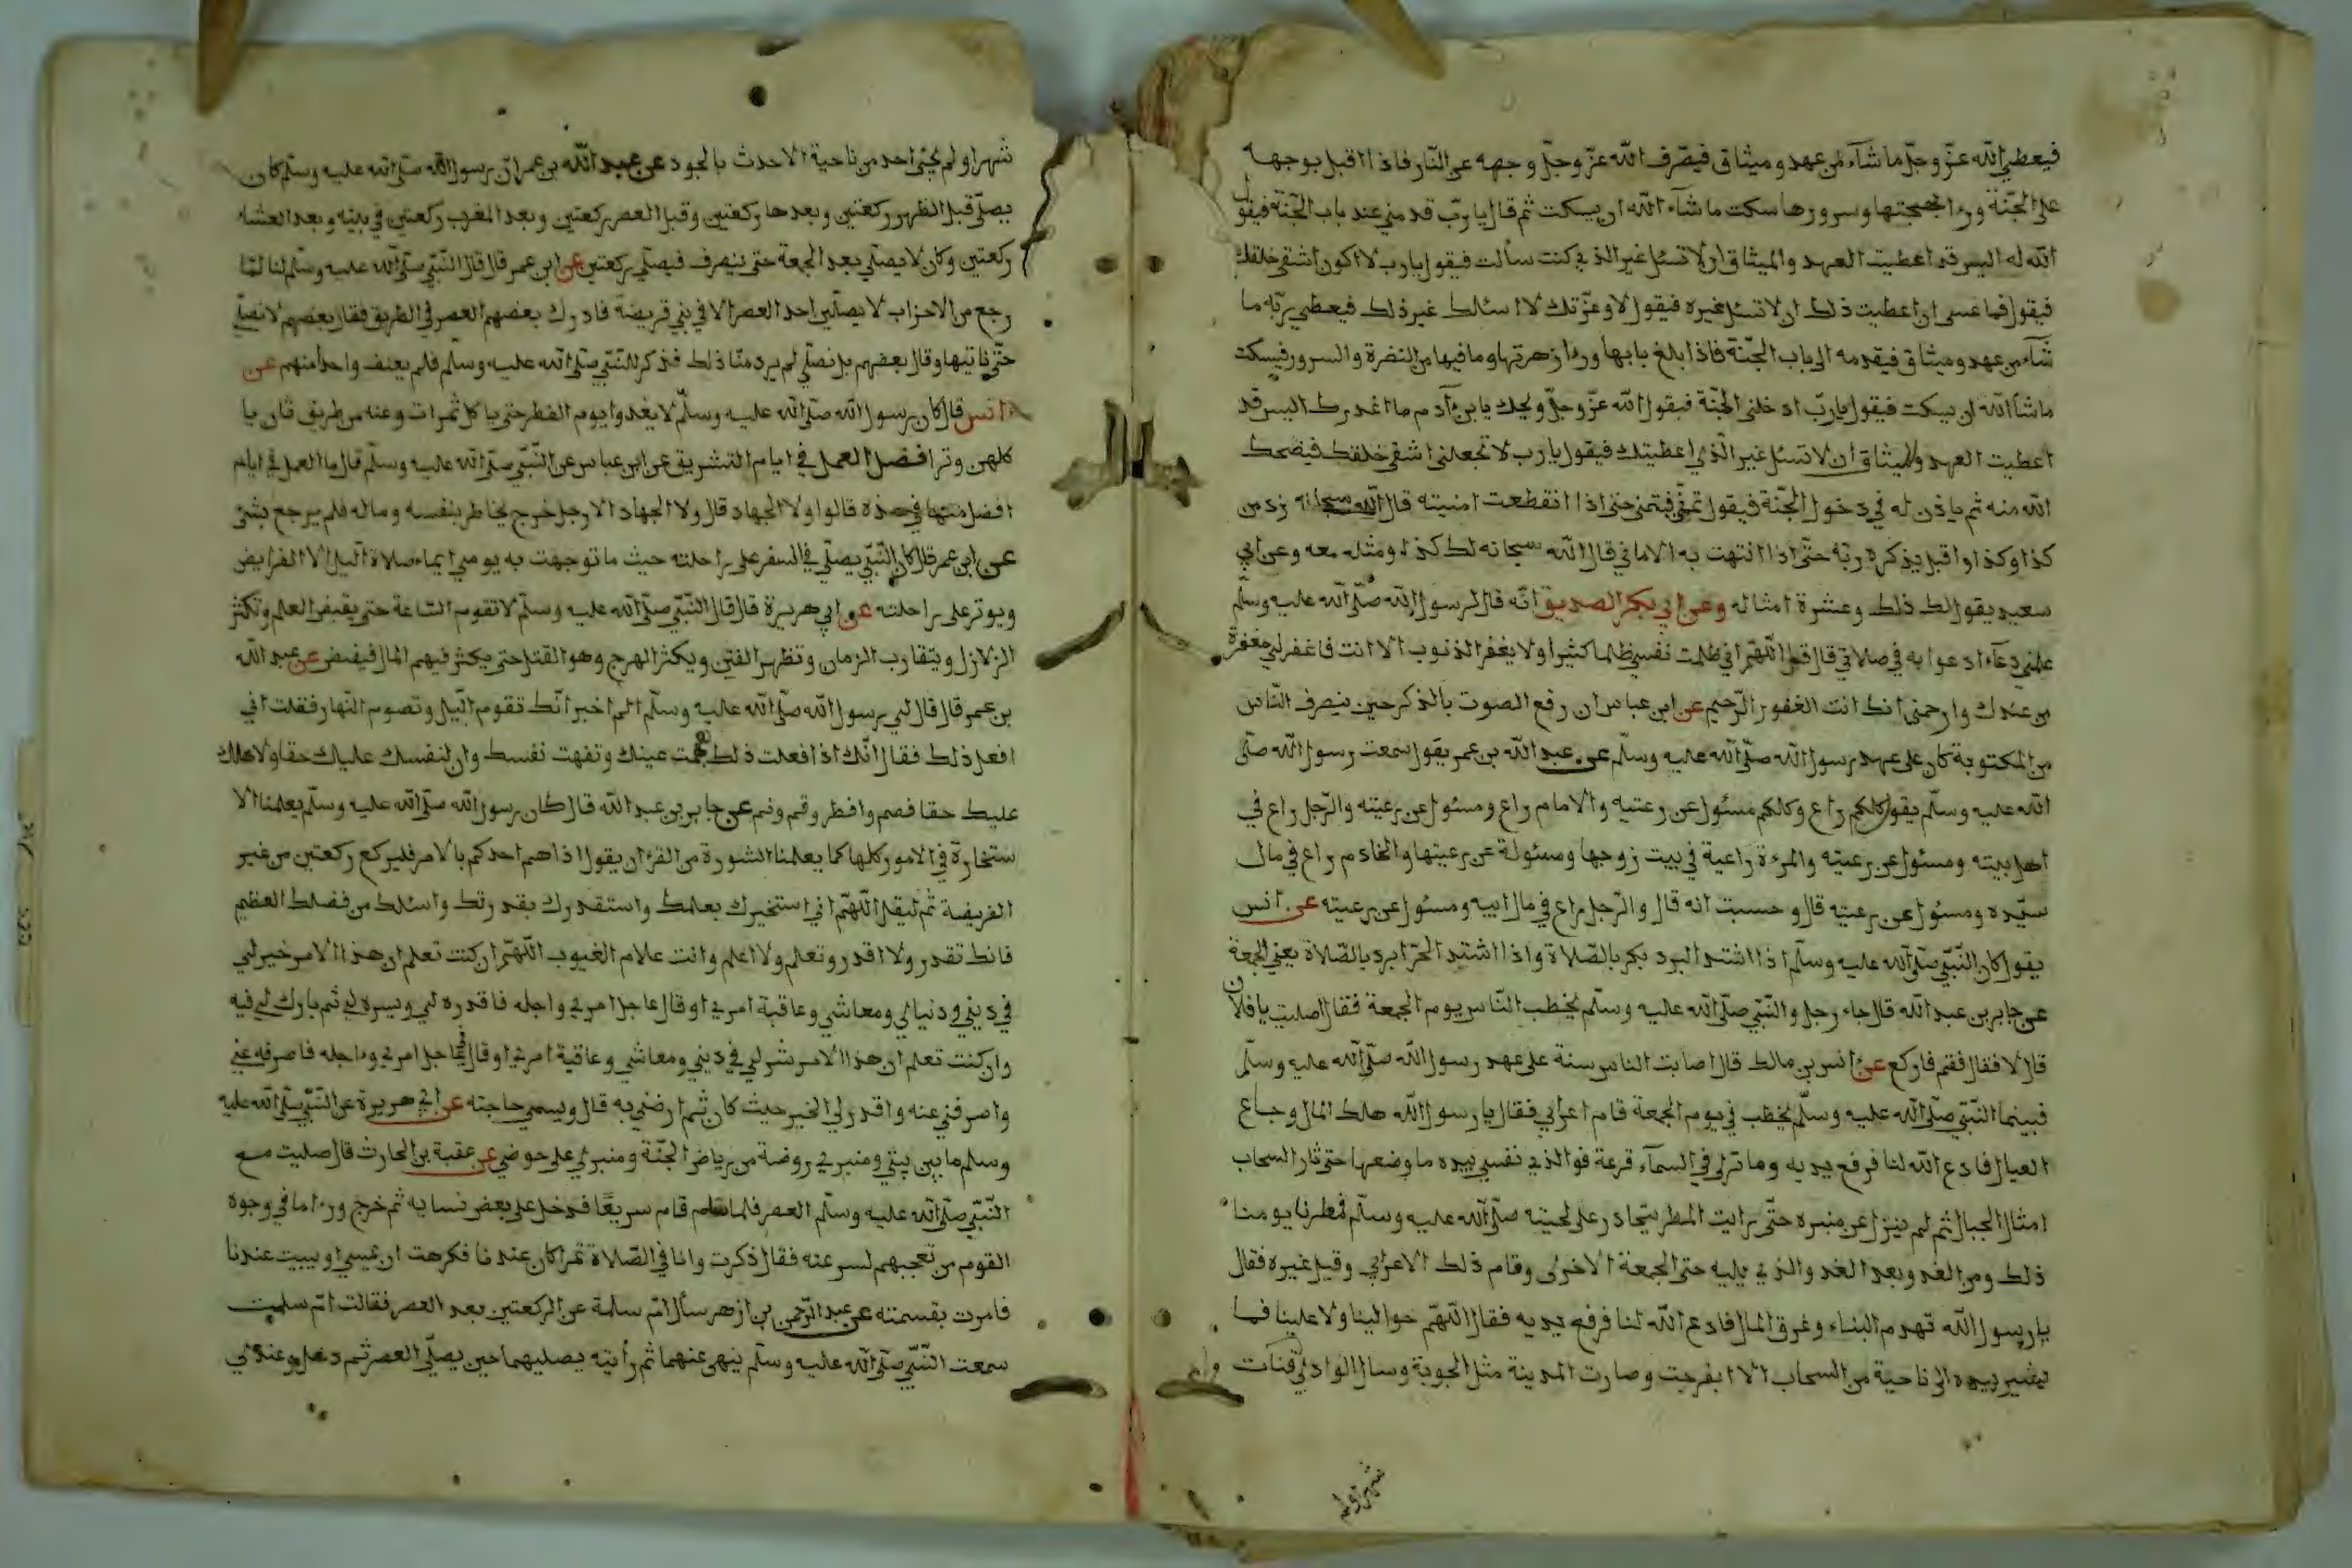 فيعطي الله عزّ وجلّ ما شآء من عهد و ميثاق فيصرف الله عزّ وجلّ وجهه عن النّار فاذا اقبل بوجهه
على الجنّة ورءا بهجتها وسرورها سكت ما شآء الله ان يسكت ثم قال يا ربّ قدمني عند باب الجنّة فيقول
الله له اليس قد اعطيت العهد والميثاق ان لا تسئل غير الذي كنت سألت فيقول يا رب لا اكون اشقى خلقك
فيقول فما عسى ان اعطيت ذلك ان لا تسئل غيره فيقول لا وعزّتك لا اسئلك غير ذلك فيعطي ربّه ما
شآء من عهد وميثاق فيقدمه الى باب الجنّة فاذا بلغ بابها ورءا زهرتها وما فيها من النضرة والسرور فيسكت
ما شآ الله ان يسكت فيقول يا ربّ ادخلني الجنّة فيقول الله عزّ وجلّ ويحك يا بن آدم ما اغدرك اليس قد
اعطيت العهد والميثاق ان لا تسئل غير الّذي اعطيتك فيقول يا رب لا تجعلني اشقى خلقك فيضحك
الله منه ثم ياذن له في دخول الجنّة فيقول تمنّ فيتمنى حتى اذا انقطعت امنيته قال الله سبحانه زد من
كذا وكذا واقبل يذكره ربّه حتّى اذا انتهت به الاماني قال الله سبحانه لك كذلو ومثله معه وعن ابي
سعيد يقول لك ذلك وعشرة امثاله وعن ابي بكر الصديق انّه قال لرسول الله صلّى الله عليه وسلّم
علمني دعآء ادعوا به في صلاتي قال قل اللّهمّ اني ظلمت نفسي ظلما كثيرا ولا يغفر الذنوب الا انت فاغفر لي مغفرة
من عندك وارحمني انك انت الغفور الرّحيم عن ابن عباس ان رفع الصوت بالذكر حين ينصرف النّاس
من المكتوبة كان على عهد رسول الله صلّى الله عليه وسلّم عن عبد الله بن عمر يقول سمعت رسول الله صلّى
الله عليه وسلّم يقول كلكم راع وكلكم مسئول عن رعتيه والامام راع ومسئول عن رعيته والرّجل راع في
اهل بيته ومسئول عن رعيته والمرءة راعية في بيت زوجها ومسئولة عن رعيتها والخادم راع في مال
سيّده ومسئول عن رعيته قال وحسبت انه قال والرّجل راع في مال ابيه ومسئول عن رعيته عن انس
يقول كان النّبيّ صلّى الله عليه وسلّم اذا اشتد البرد بكر بالصّلاة واذا اشتد الحرّ ابرد بالصّلاة يعني الجمعة
عن جابر بن عبد الله قال جاء رجل والنّبيّ صلّى الله عليه وسلّم يخطب النّاس يوم الجمعة فقال اصليت يا فلان
قال لا فقال فقم فاركع عن انس بن مالك قال اصابت الناس سنة على عهد رسول الله صلّى الله عليه وسلّم
فبينما النّبيّ صلّى الله عليه وسلّم يخطب في يوم الجمعة قام اعرابي فقال يا رسول الله هلك المال وجاع
العيال فادع الله لنا فرفع يديه وما ترى في السمآء قزعة فوالذي نفسي بيده ما وضعها حتى ثار السحاب
امثال الجبال ثم لم ينزل عن منبره حتّى رايت المطر يتحادر على لحيته صلّى الله عليه وسلّم فمطرنا يومنا
ذلك ومن الغد وبعد الغد والذي يليه حتى الجمعة الاخرى وقام ذلك الاعرابي وقيل غيره فقال
يا رسول الله تهدم البناء وغرق المال فادع الله لنا فرفع يديه فقال اللّهمّ حوالينا ولا علينا فما
يشير بيده الى ناحية من السحاب الا انفرجت وصارت المدينة مثل الجوبة وسال الوادي قنآت
شهرا ولم
شهرا ولم يجئ احد من ناحية الا حدث بالجود عن عبد الله بن عمر انّ رسول الله صلّى الله عليه وسلّم كان
يصلّي قبل الظهر ركعتين وبعدها ركعتين وقبل العصر ركعتين وبعد المغرب ركعتين في بيته وبعد العشاء
ركعتين وكان لا يصلّي بعد الجمعة حتى ينصرف فيصلّي ركعتين عن ابن عمر قال قال النّبيّ صلّى الله عليه وسلّم لنا لمّا
رجع من الاحزاب لا يصلّين احد العصر الا في بني قريضة فادرك بعضهم العصر في الطريق فقال بعضهم لا نصلّي
حتّى ناتيها وقال بعضهم بل نصلّي لم يرد منّا ذلك فذكر للنّبيّ صلّى الله عليه وسلّم فلم يعنف واحدا منهم عن
انس قال كان رسول الله صلّى الله عليه وسلّم لا يغدوا يوم الفطر حتى ياكل تمرات وعنه من طريق ثان يا
كلهن وترا فضل العمل في ايام التشريق عن ابن عباس عن النّبيّ صلّى الله عليه وسلّم قال ما العمل في ايام
افضل منها في هذه قالوا ولا الجهاد قال ولا الجهاد الا رجل خرج يخاطر بنفسه وماله فلم يرجع بشئ
عن ابن عمر قال كان النّبيّ يصلّي في السفر على راحلته حيث ما توجهت به يومي ايماء صلاة اليل الا الفرايض
ويوتر على راحلته عن ابي هريرة قال قال النّبيّ صلّى الله عليه وسلّم لا تقوم السّاعة حتى يقبض العلم وتكثر
الزلازل ويتقارب الزمان وتظهر الفتن ويكثر الهرج وهو القتل حتى يكثر فيهم المال فيفيض عن عبد الله
بن عمرو قال قال لي رسول الله صلّى الله عليه وسلّم الم اخبر انّك تقوم اليل وتصوم النّهار فقلت اني
افعل ذلك فقال انّك اذا فعلت ذلك هجمت عينك ونفهت نفسك وان لنفسك عليك حقا ولاهلك
عليك حقا فصم وافطر وقم ونم عن جابر بن عبد الله قال كان رسول الله صلّى الله عليه وسلّم يعلمنا الا
ستخارة في الامور كلها كما يعلمنا السّورة من القرءان يقول اذا هم احدكم بالامر فليركع ركعتين من غير
الفريضة ثم ليقل اللّهمّ اني استخيرك بعلمك واستقدرك بقدرتك واسئلك من فضلك العظيم
فانك تقدر ولا اقدر وتعلم ولا اعلم وانت علام الغيوب اللّهمّ ان كنت تعلم ان هذا الامر خير لي
في ديني ودنيائي ومعاشي وعاقبة امري او قال عاجل امري واجله فاقدره لي ويسره لي ثم بارك لي فيه
وان كنت تعلم ان هذا الامر شر لي في ديني ومعاشي وعاقبة امري او قال في عاجل امري وءاجله فاصرفه عني
واصرفني عنه واقدر لي الخير حيث كان ثم ارضني به قال ويسمي حاجته عن ابي هريرة عن النّبيّ صلّى الله عليه
وسلم ما بين بيتي ومنبري روضة من رياض الجنّة ومنبري على حوضي عن عقبة بن الحارث قال صليت مع
النّبيّ صلّى الله عليه وسلّم العصر فلما سلم قام سريعًا فدخل على بعض نسايه ثم خرج ورءا ما في وجوه
القوم من تعجبهم لسرعته فقال ذكرت وانا في الصّلاة تبرا كان عندنا فكرهت ان يمسي او يبيت عندنا
فامرت بقسمته عن عبد الرّحمن بن ازهر سأل امّ سلمة عن الركعتين بعد العصر فقالت امّ سلمت
سمعت النّبيّ صلّى الله عليه وسلّم ينهى عنهما ثم رأيته يصليهما حين يصلّي العصر ثم دخل وعندي